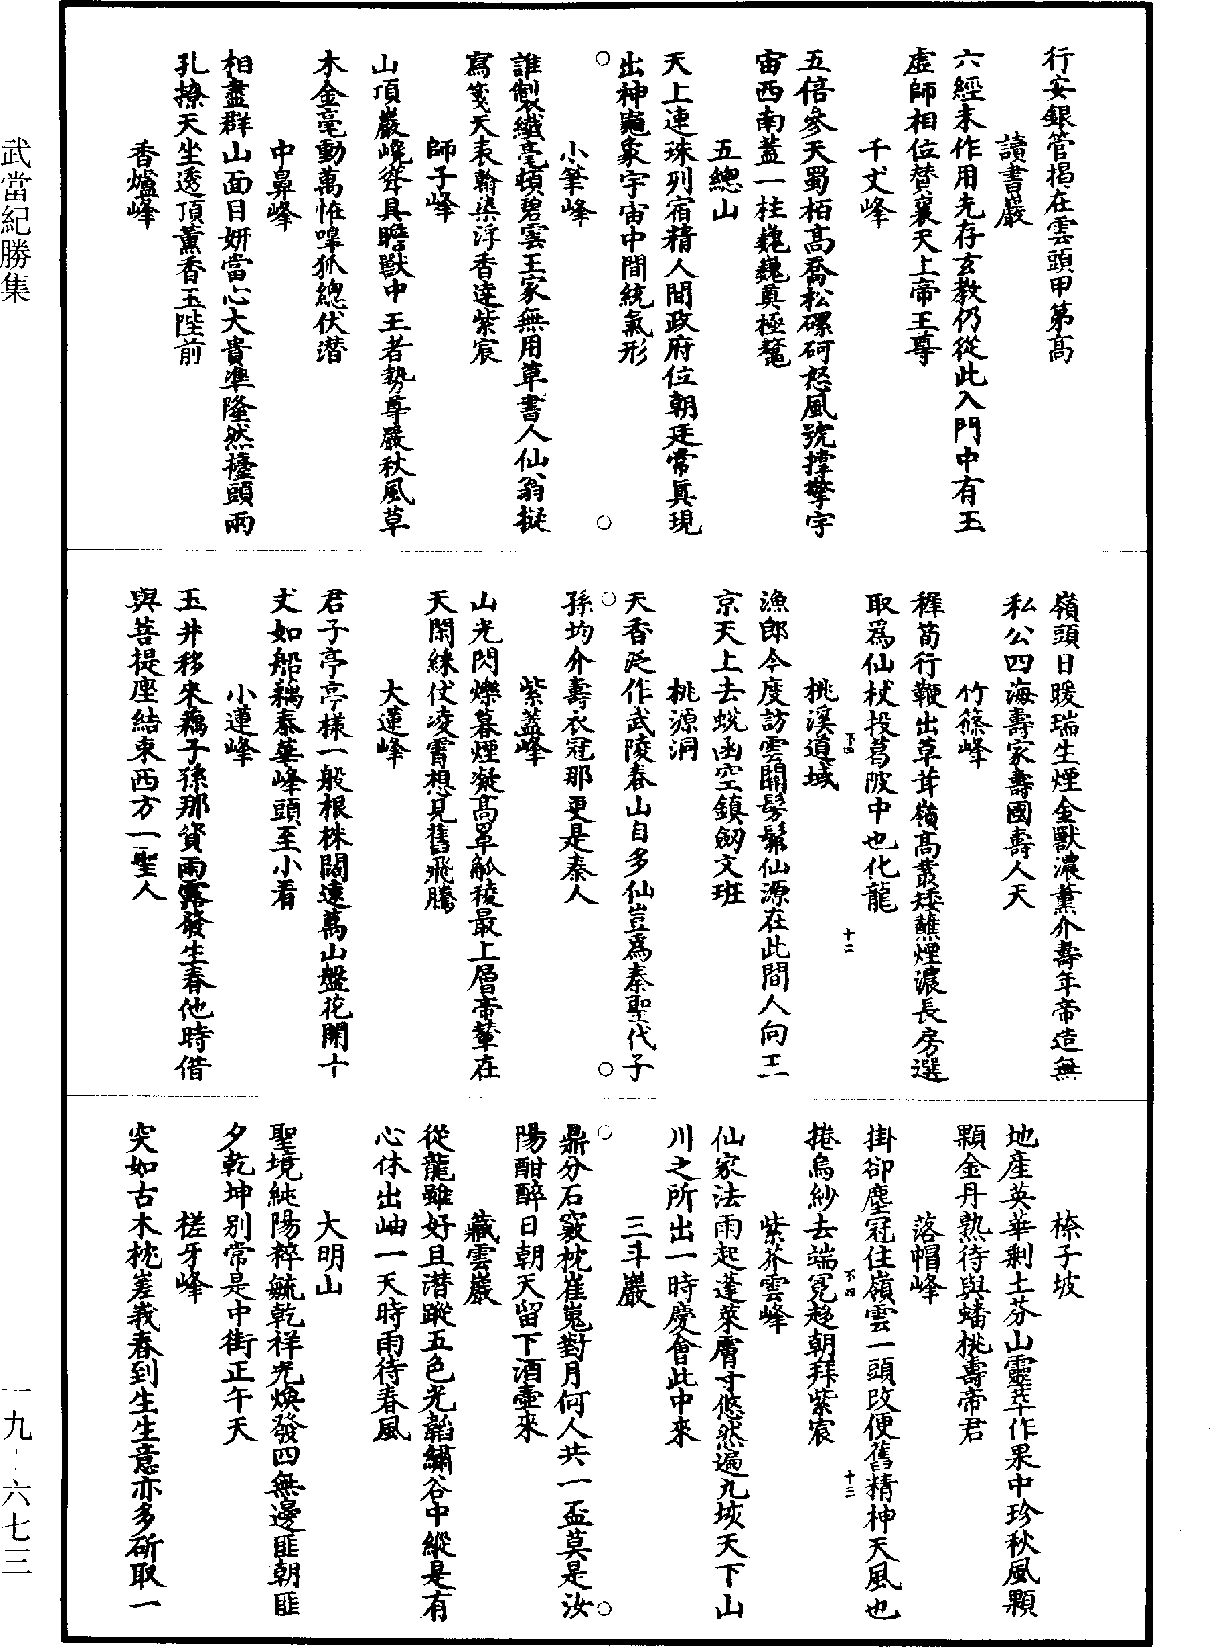 武當紀勝集
行安銀管揭在雲頭甲第高
讀書巖
六經未作用先存玄教仍從此入門中有玉
虛師相位贊襄天上帝王尊
千丈峰
五倍參天蜀柏高喬松磥砢怒風號撑擎宇
宙西南蓋一柱巍巍奠極鼇
五總山
天上連珠列宿精人間政府位朝廷常眞現
出神龜象宇宙中間統氣形
小筆峰
誰製纖毫頓碧雲王家無用草書人仙翁擬
寫箋天表翰染浮香達紫宸
師子峰
山頂巖嶢聳具瞻獸中王者勢尊嚴秋風草
木金毫動萬恠嘷狐總伏潛
中鼻峰
相盡群山面目妍當心大貴準隆然擡頭兩
孔撩天坐透頂薰香玉陛前
香爐峰
嶺頭日暖瑞生煙金獸濃薰介壽年帝造無
私公四海壽家壽國壽人天
竹篠峰
稺筍行鞭出草茸嶺高叢矮蘸煙濃長房選
取爲仙杖投葛陂中也化龍
桃溪道域
漁郎今度訪雲關髣髴仙源在此間人向玉
京天上去蛻函空鎮劒文班
桃源洞
天香泛作武陵春山自多仙豈爲秦聖代子
孫均介壽衣冠那更是秦人
紫蓋峰
山光閃爍暮煙凝高罩觚稜最上層帝輦在
天閑綵仗凌霄想見舊飛騰
大蓮峰
君子亭亭樣一般根株闊遠萬山盤花開十
丈如船藕泰華峰頭至小看
小蓮峰
玉井移來藕子孫那資雨露發生春他時借
與菩提座結束西方一聖人
榛子坡
地產英華剩土芬山靈萃作果中珍秋風顆
顆金丹熟待與蟠桃壽帝君
落帽峰
掛卻塵冠住嶺雲一頭改便舊精神天風也
捲烏紗去端冕趍朝拜紫宸
紫芥雲峰
仙家法雨起蓬萊膚寸悠然遍九垓天下山
川之所出一時慶會此中來
三斗巖
鼎分石竅枕崔嵬對月何人共一盃莫是汝
陽酣醉日朝天留下酒壺來
藏雲巖
從龍雖好且潛蹤五色光韜繡谷中縱是有
心休出岫一天時雨待春風
大明山
聖境純陽粹毓乾祥光煥發四無邊匪朝匪
夕乾坤別常是中街正午天
槎牙峰
突如古木枕嵳峩春到生生意亦多斫取一
下四
十二
下四
十三
一九-六七三